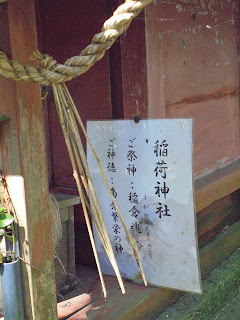 稲荷神社
ご祭神：稲倉魂命
ご神徳：商売繁栄の神